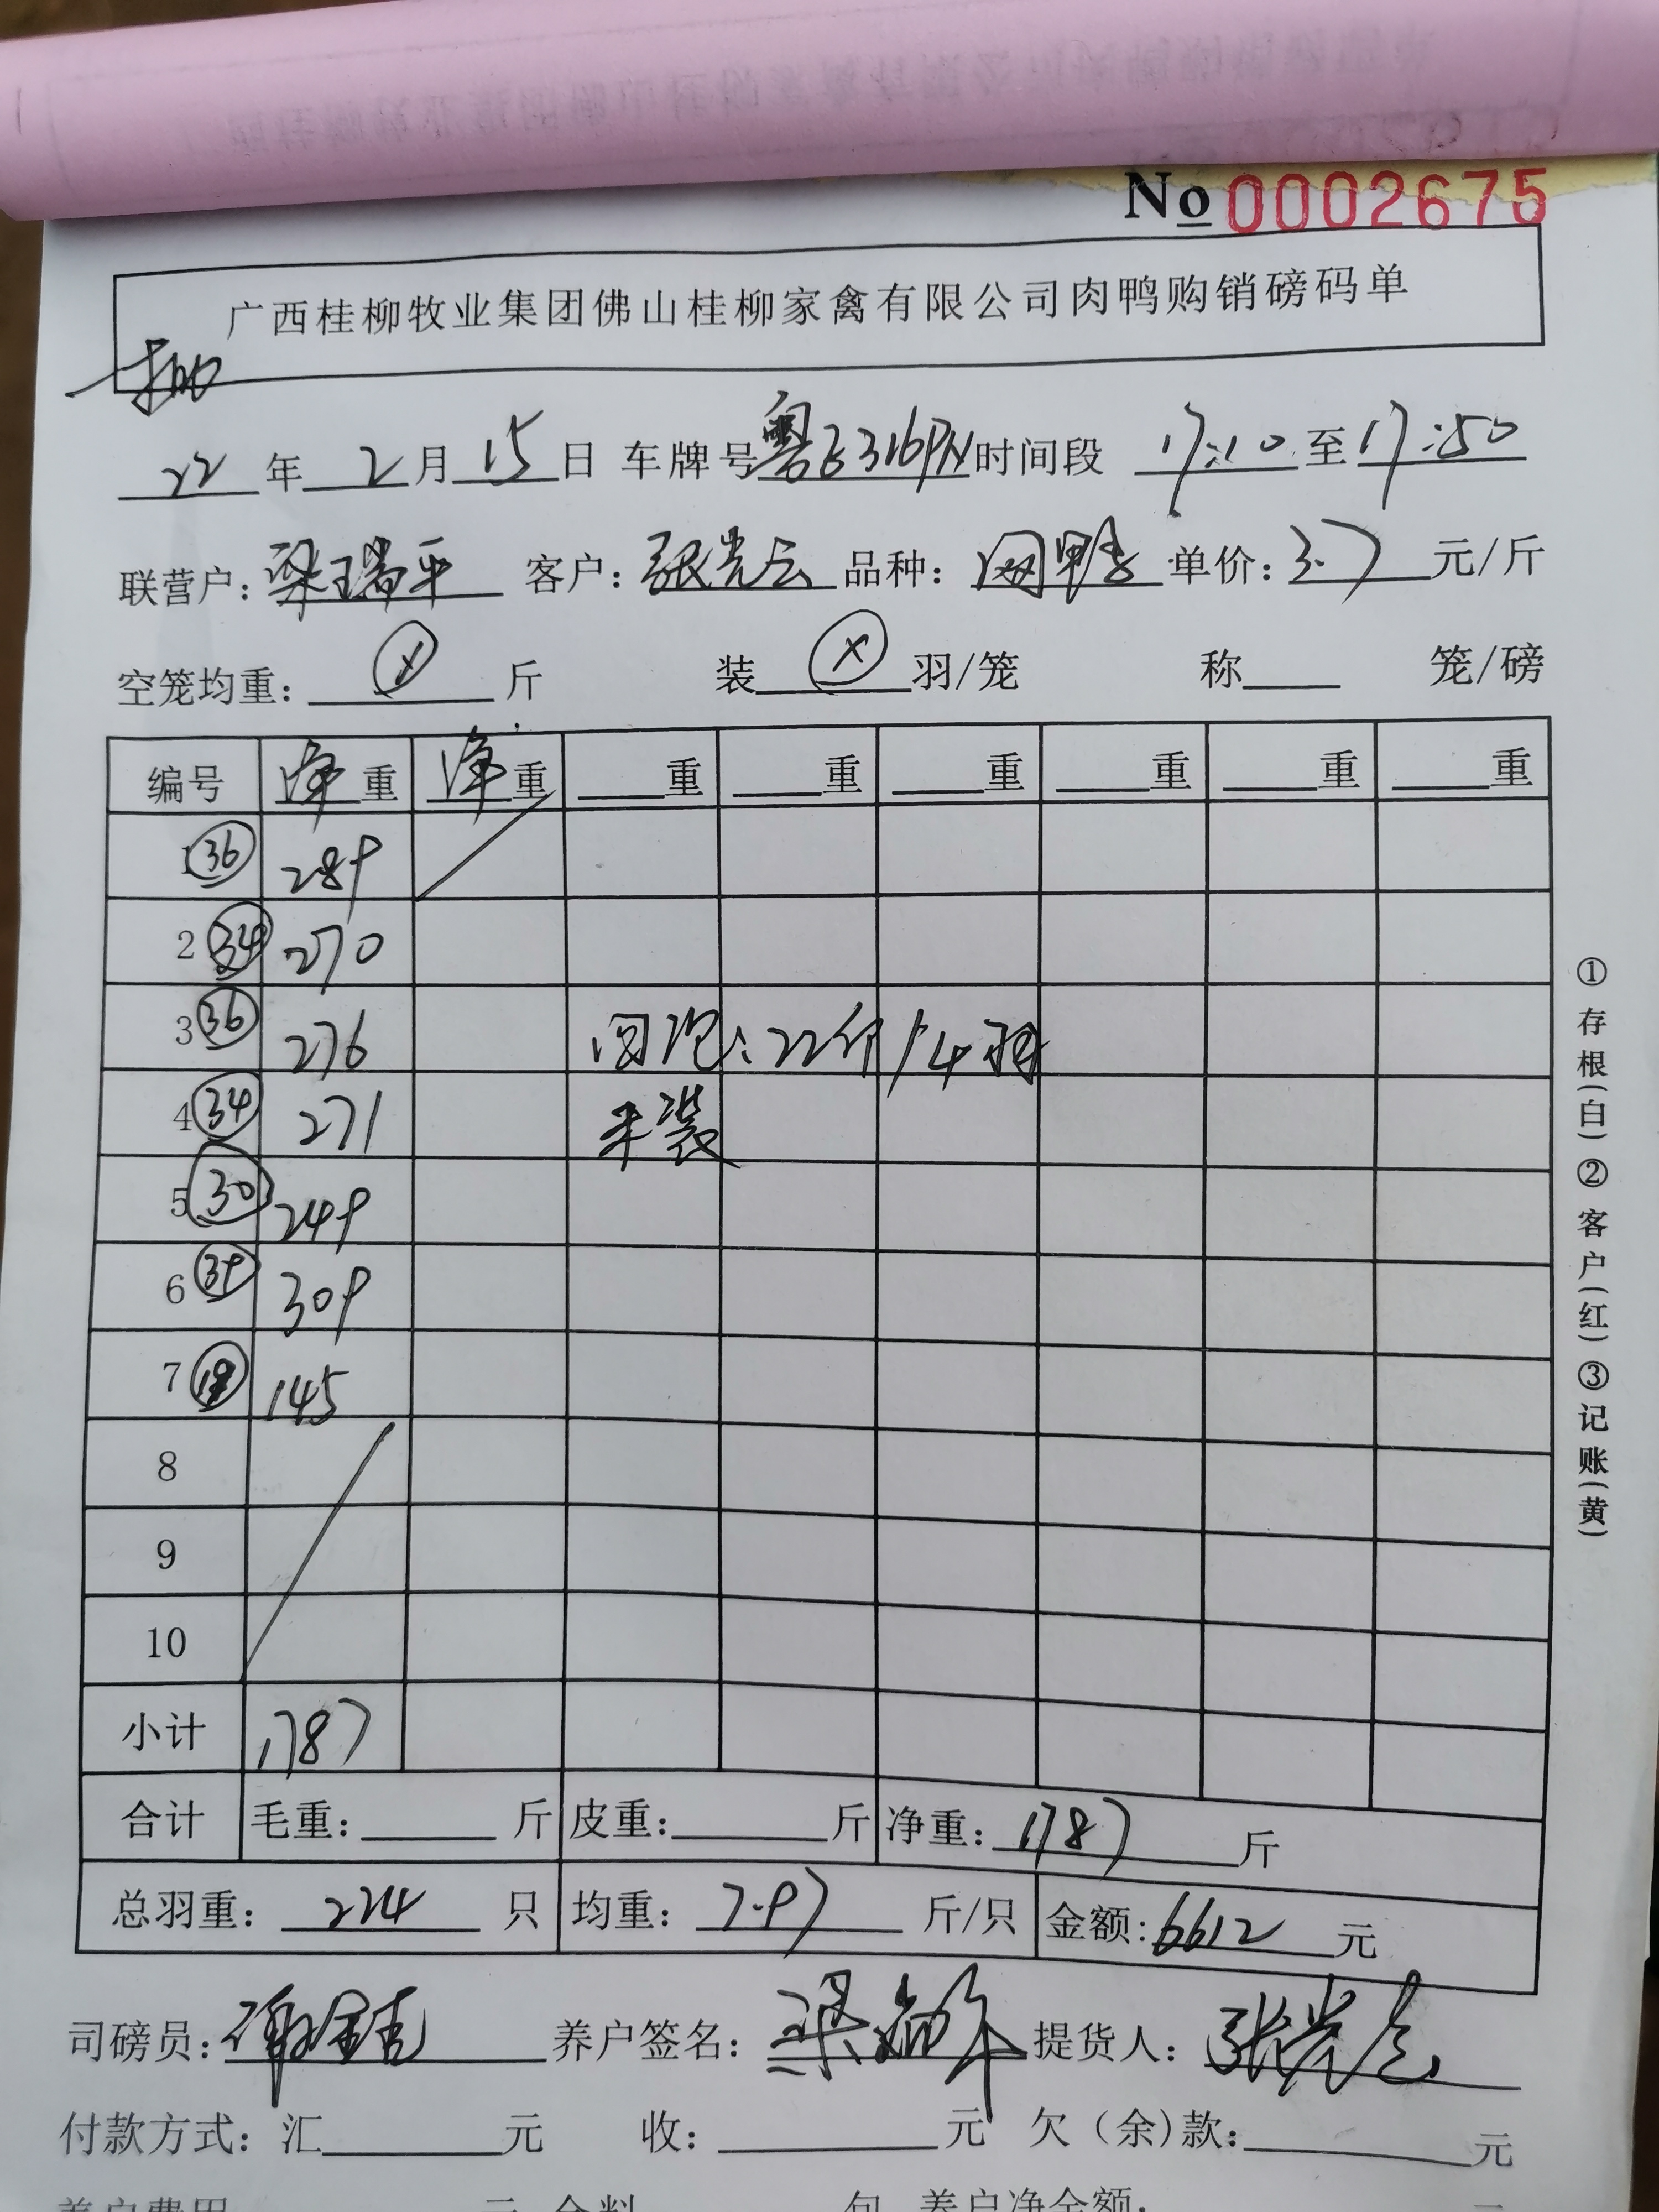 No 0002675
广西桂柳牧业集团佛山桂柳家禽有限公司肉鸭购销磅码单
22年2月15日 车牌号粤E316PN时间段 17:10至17:50
联营户:梁瑞平 客户:张光云 品种:网鸭 单价:3.7元/斤
空笼均重:ⓧ斤 装ⓧ羽/笼 称____笼/磅
编号 净重 净重 ____重 ____重 ____重 ____重 ____重 ____重
1 36 289
2 34 270
3 36 276 回:22斤/4羽
4 34 271 未装
5 30 249
6 39 309
7 19 145
8
9
10
小计 1787
合计 毛重:____斤 皮重:____斤 净重:1787斤
总羽重:224只 均重:7.97斤/只 金额:6612元
司磅员: 养户签名:梁瑞平 提货人:张光云
付款方式:汇____元 收:____元 欠(余)款:____元
①存根(白)②客户(红)③记账(黄)